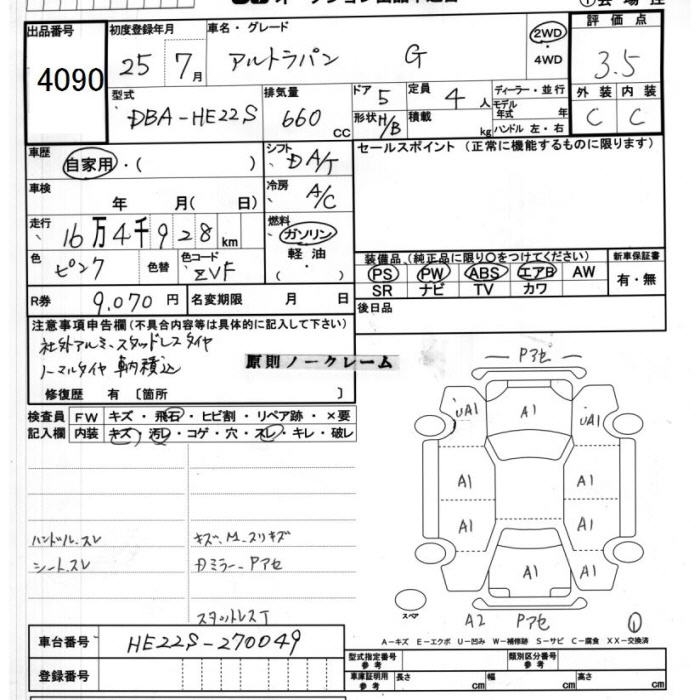 出品番号
4090
初度登録年月
25 7月
車名・グレード
アルトラパン G
2WD
・
4WD
評価点
3.5
外装 内装
C C
型式
DBA-HE22S
排気量
660 cc
ドア 5
形状 H/B
定員 4 人
積載 kg
ディーラー・並行
モデル年式 年
ハンドル 左・右
車歴
自家用・( )
シフト
DA/T
セールスポイント (正常に機能するものに限ります)
車検
年 月( 日)
冷房
A/C
走行
16万4千928km
燃料
ガソリン
軽油
・( )
色
ピンク
色替
色コード
ZVF
装備品 (純正品に限り○をつけてください)
PS PW ABS エアB AW
SR ナビ TV カワ
新車保証書
有・無
R券 9,070円
名変期限 月 日
後日品
注意事項申告欄(不具合内容等は具体的に記入して下さい)
社外アルミ・スタッドレスタイヤ
ノーマルタイヤ 車輌積込
原則ノークレーム
修復歴 有 〔箇所 〕
検査員記入欄
FW キズ・飛石・ヒビ割・リペア跡・×要
内装 キズ・汚レ・コゲ・穴・スレ・キレ・破レ
Pアセ
UA1 A1 UA1
A1 A1
A1 A1
A1
ハンドル、スレ
シート、スレ
キズ、M-スリキズ
カミラーPアセ
スペア
A2 Pアセ
①
A-キズ E-エクボ U-凹み W-補修跡 S-サビ C-腐食 XX-交換済
車台番号 HE22S-270049
登録番号
型式指定番号 参考
類別区分番号 参考
車庫証明用 参考
長さ cm 幅 cm 高さ cm